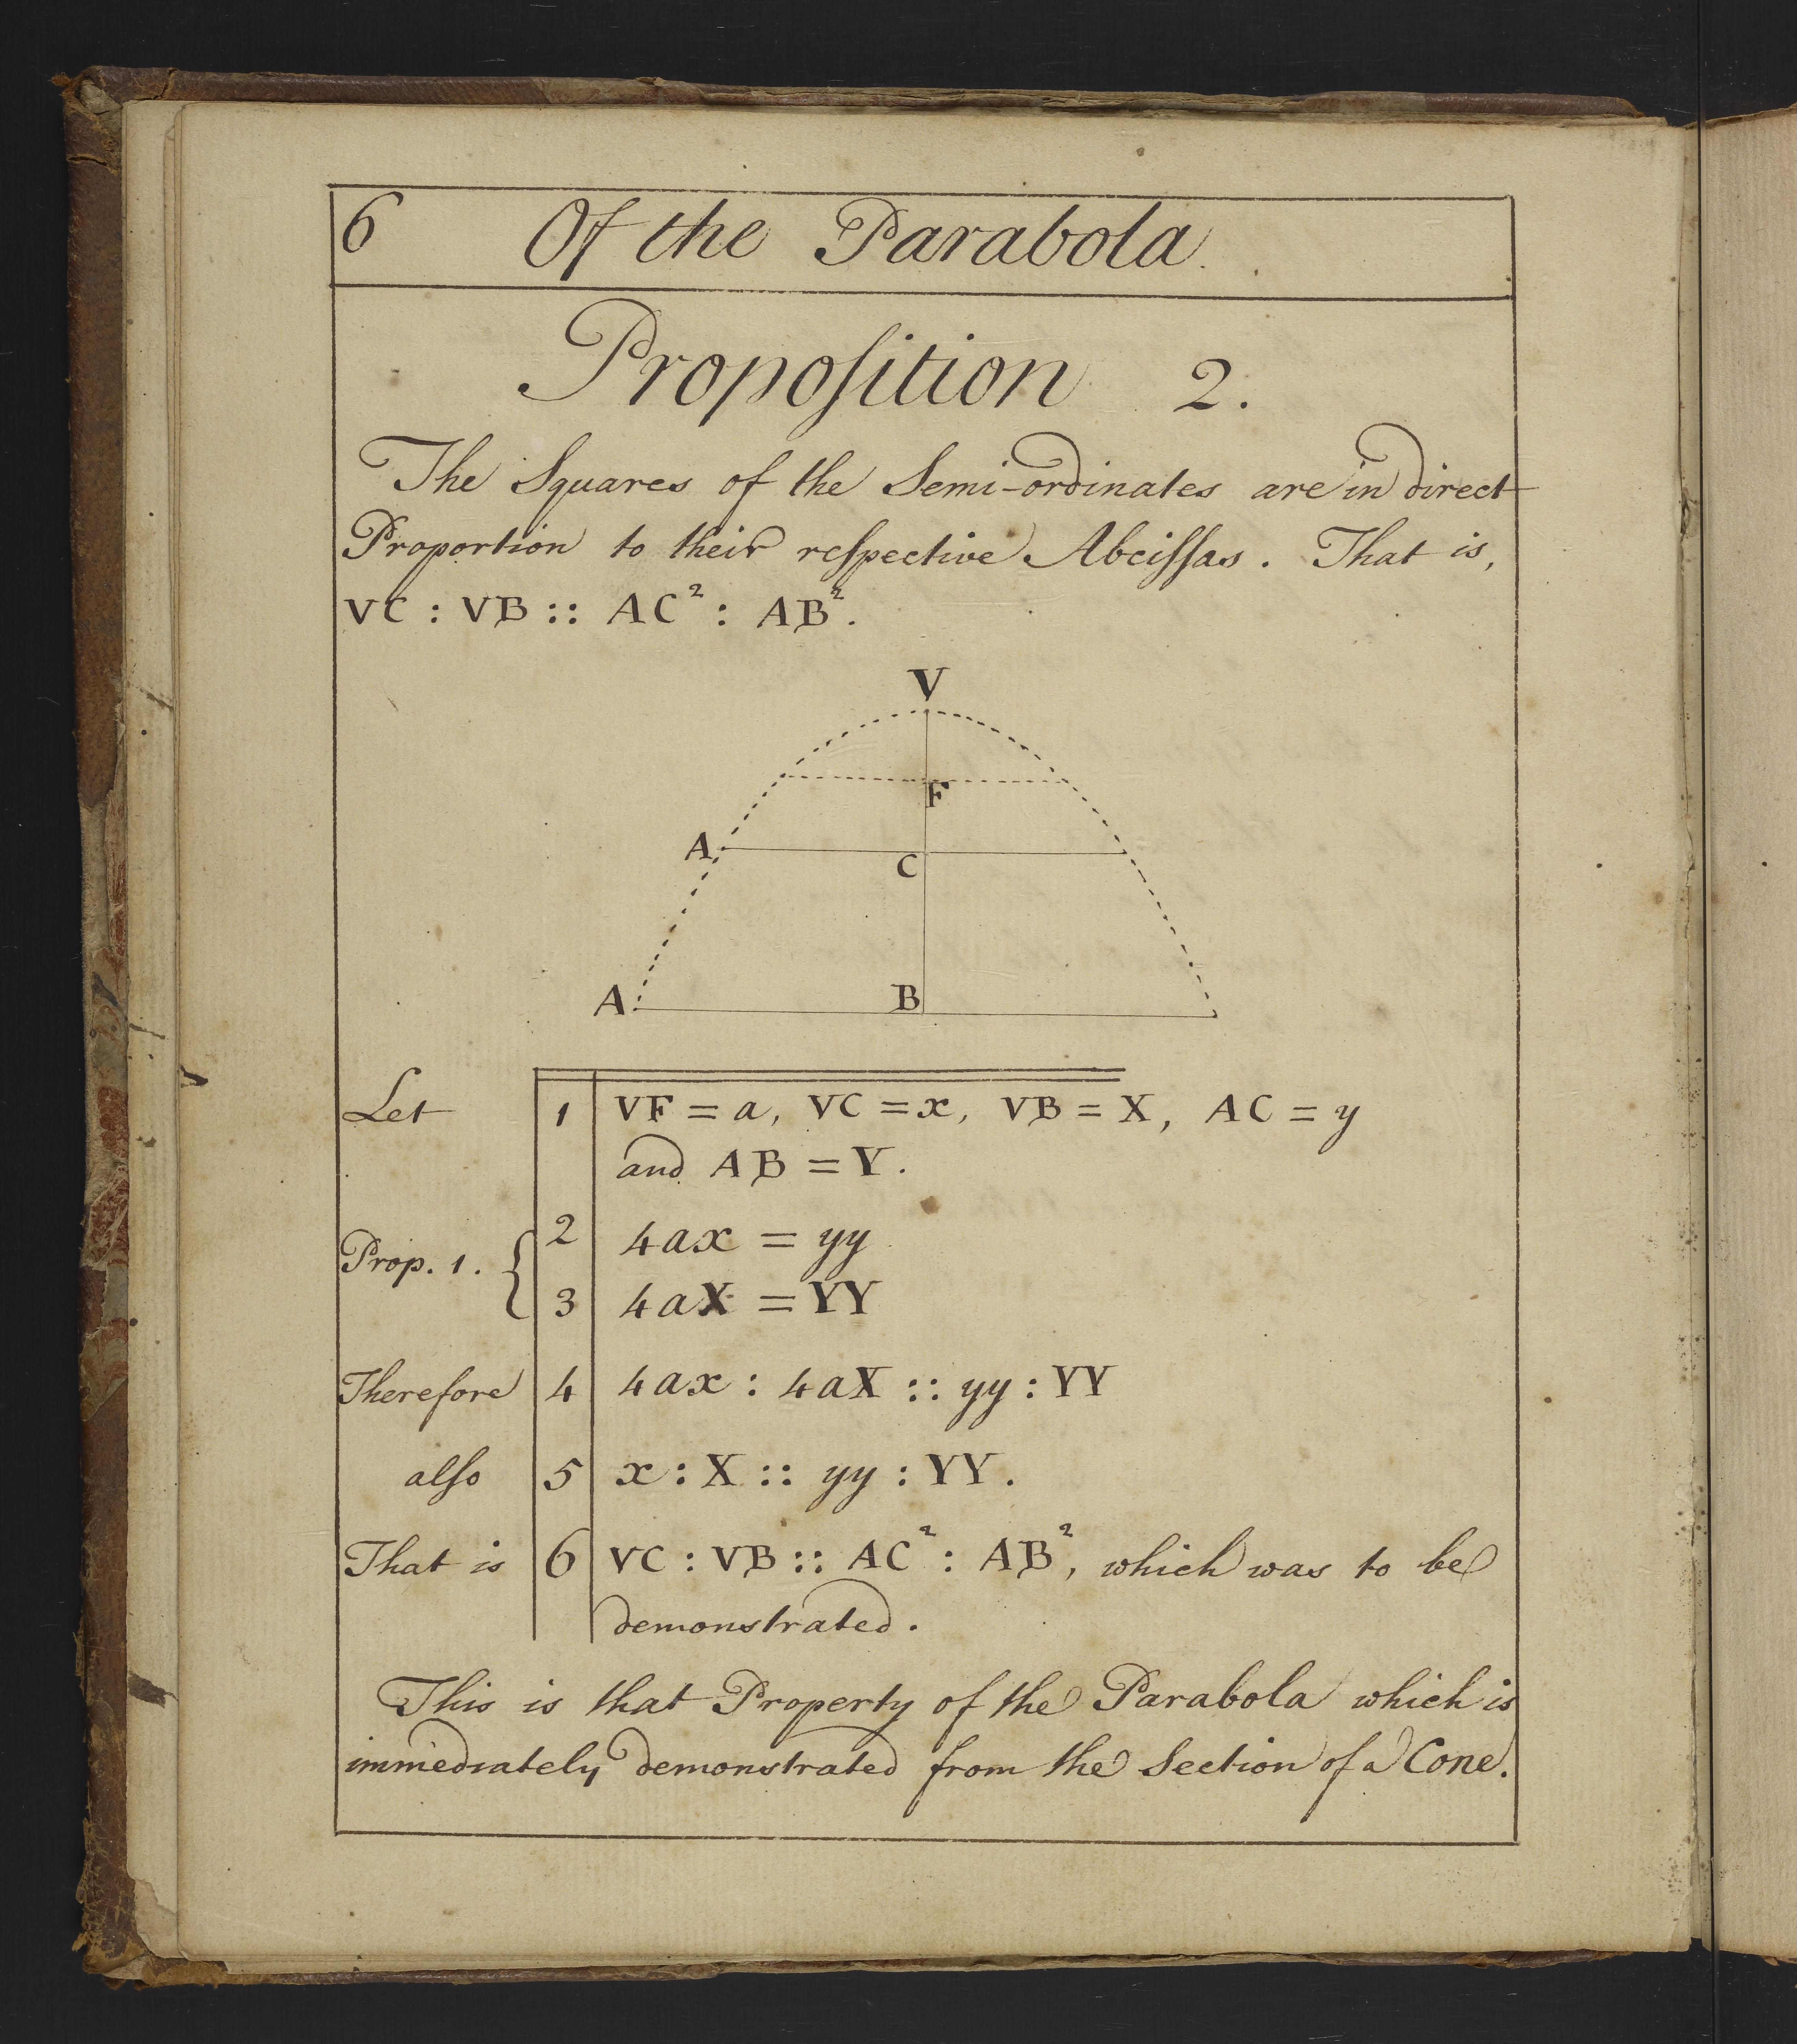 6 Of the Parabola.
Propoſition 2.
The Squares of the Semi-ordinates are in direct
Proportion to their reſpective Abciſſas. That is,
VC : VB :: AC² : AB².
V
F
A
C
A
B
Let 1 VF = a, VC = x, VB = X, AC = y
and AB = Y.
Prop. 1. { 2 4ax = yy
3 4aX = YY
Therefore 4 4ax : 4aX :: yy : YY
alſo 5 x : X :: yy : YY.
That is 6 VC : VB :: AC² : AB², which was to be
demonstrated.
This is that Property of the Parabola which is
immediately demonstrated from the Section of a Cone.